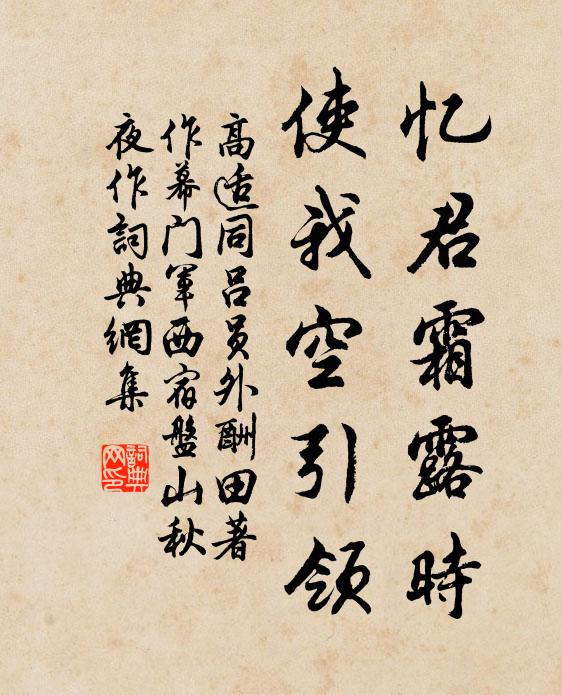 忆君霜露時
使我空引领
高适同吕员外酬田著
作幕门军西宿盤山秋
夜作詞典網集
詞典网印